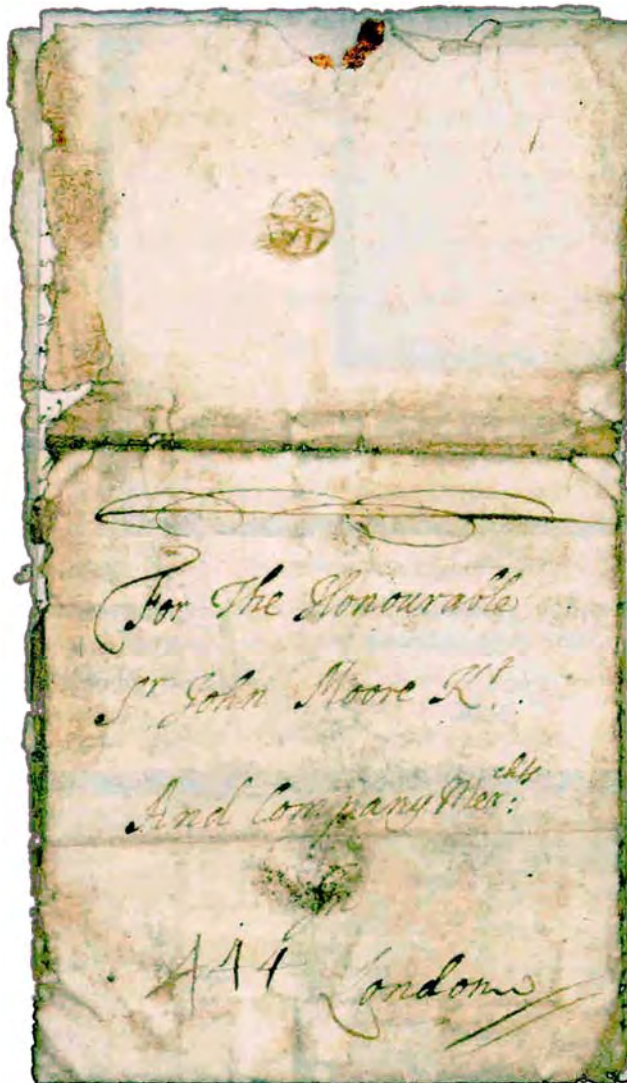 For The Honourable
Sr John Moore Kt.
And Company Merchts:
In
444 London